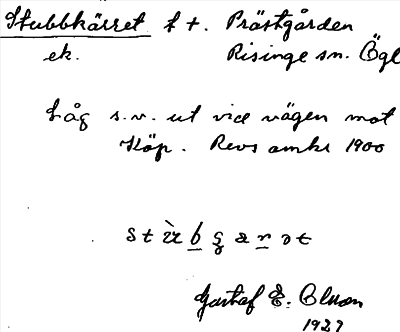 Stubbkärret f t. Prästgården
ek. Risinge sn. Ögl
Låg s.v. ut vid vägen mot
Köp. Revs omkr 1900
Gustaf E.
1927